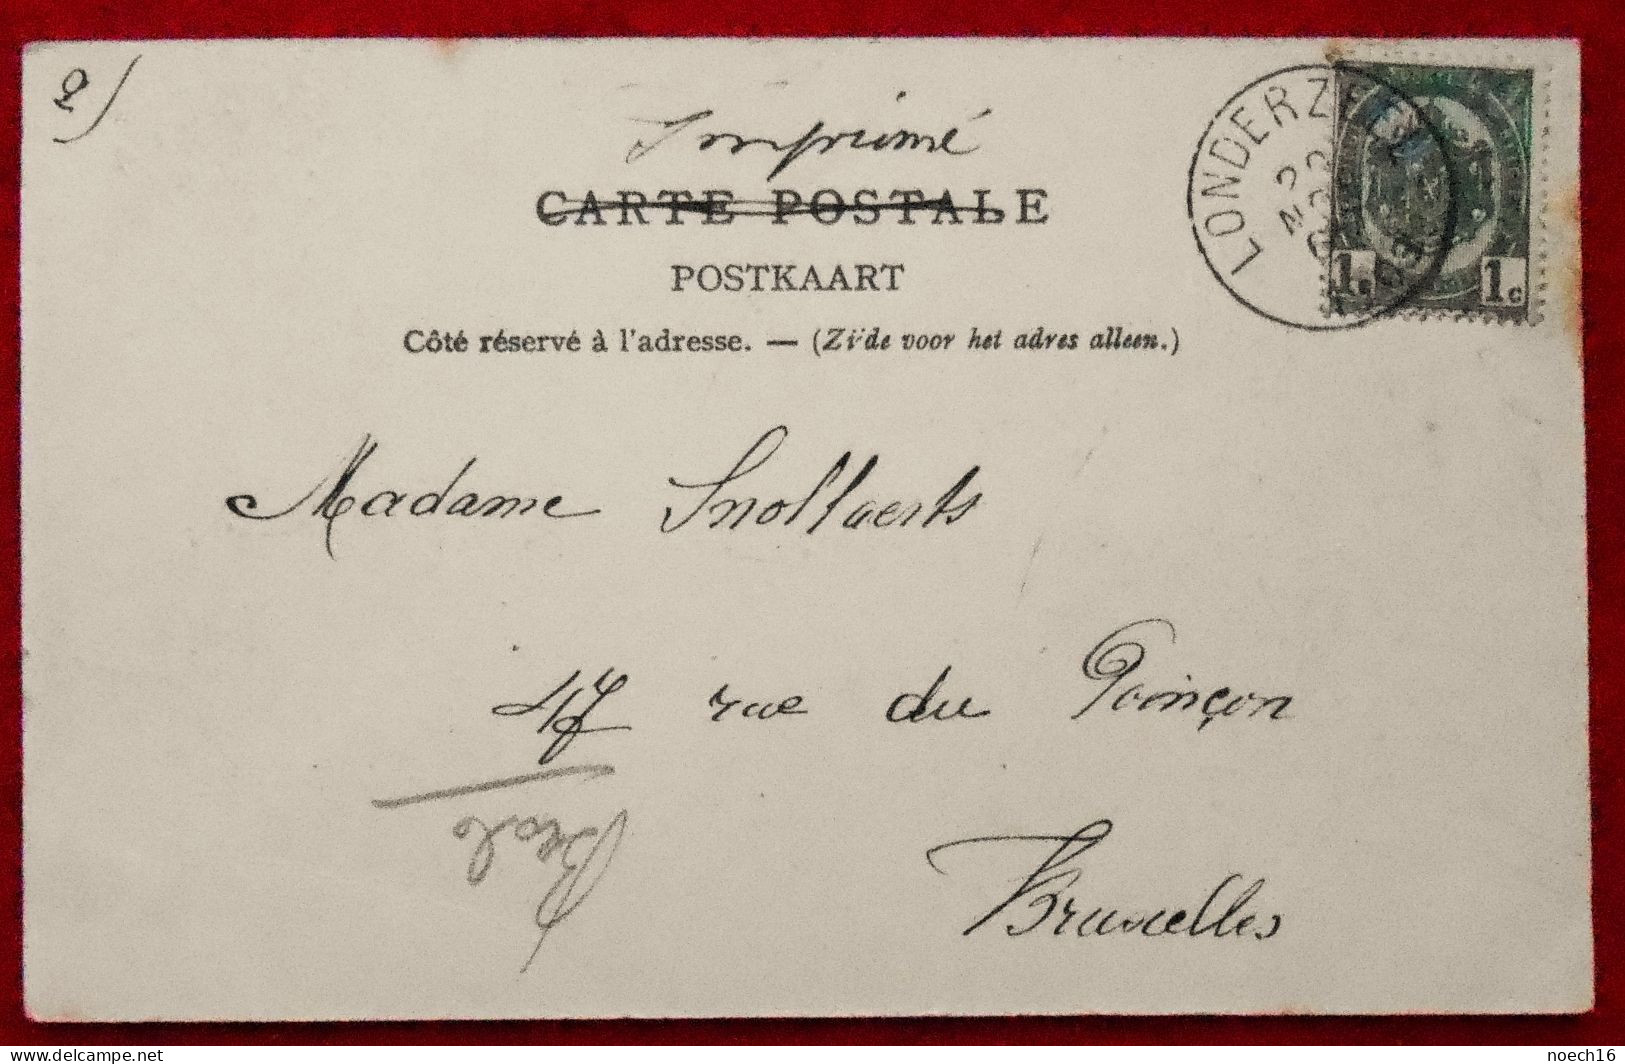 2)
Imprimé
CARTE POSTALE
POSTKAART
Côté réservé à l'adresse. — (Zijde voor het adres alleen.)
LONDERZEEL
1c 1c
Madame Snollaerts
47 rue du Poinçon
Bruxelles
delcampe.net
noech16